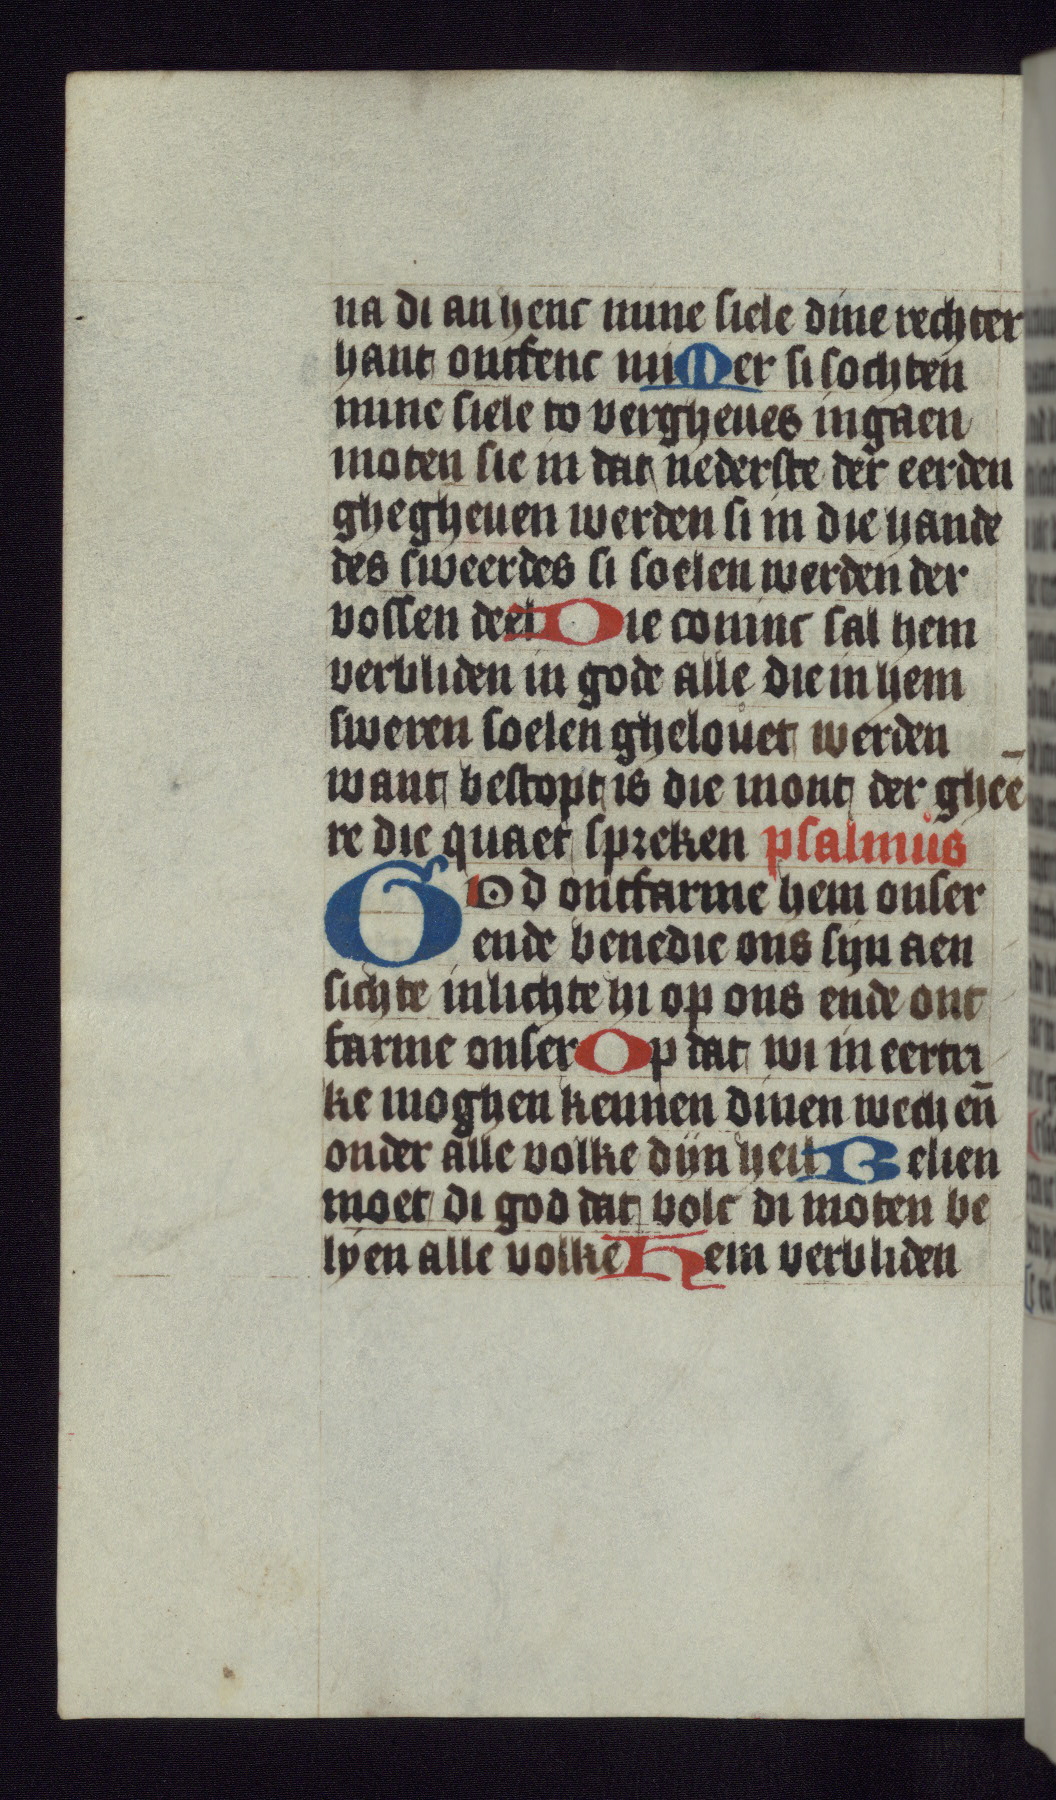 na di an henc mine siele dine rechter
hant ontfenc mi Mer si sochten
mine siele to vergheues ingaen
moten sie in dat nederste der eerden
ghegheuen werden si in die hande
des sweerdes si soelen werden der
vossen deel Die coninc sal hem
verbliden in gode alle die in hem
sweren soelen ghelouet werden
want bestopt is die mont der ghee
re die quaet spreken psalmus
GOd ontfarme hem onser
ende benedie ons sijn aen
sichte inlichte hi op ons ende ont
farme onser Op dat wi in eertri
ke moghen kennen dinen wech eñ
onder alle volke dijn heil Belien
moet di god dat volc di moten be
lyen alle volke Hem verbliden